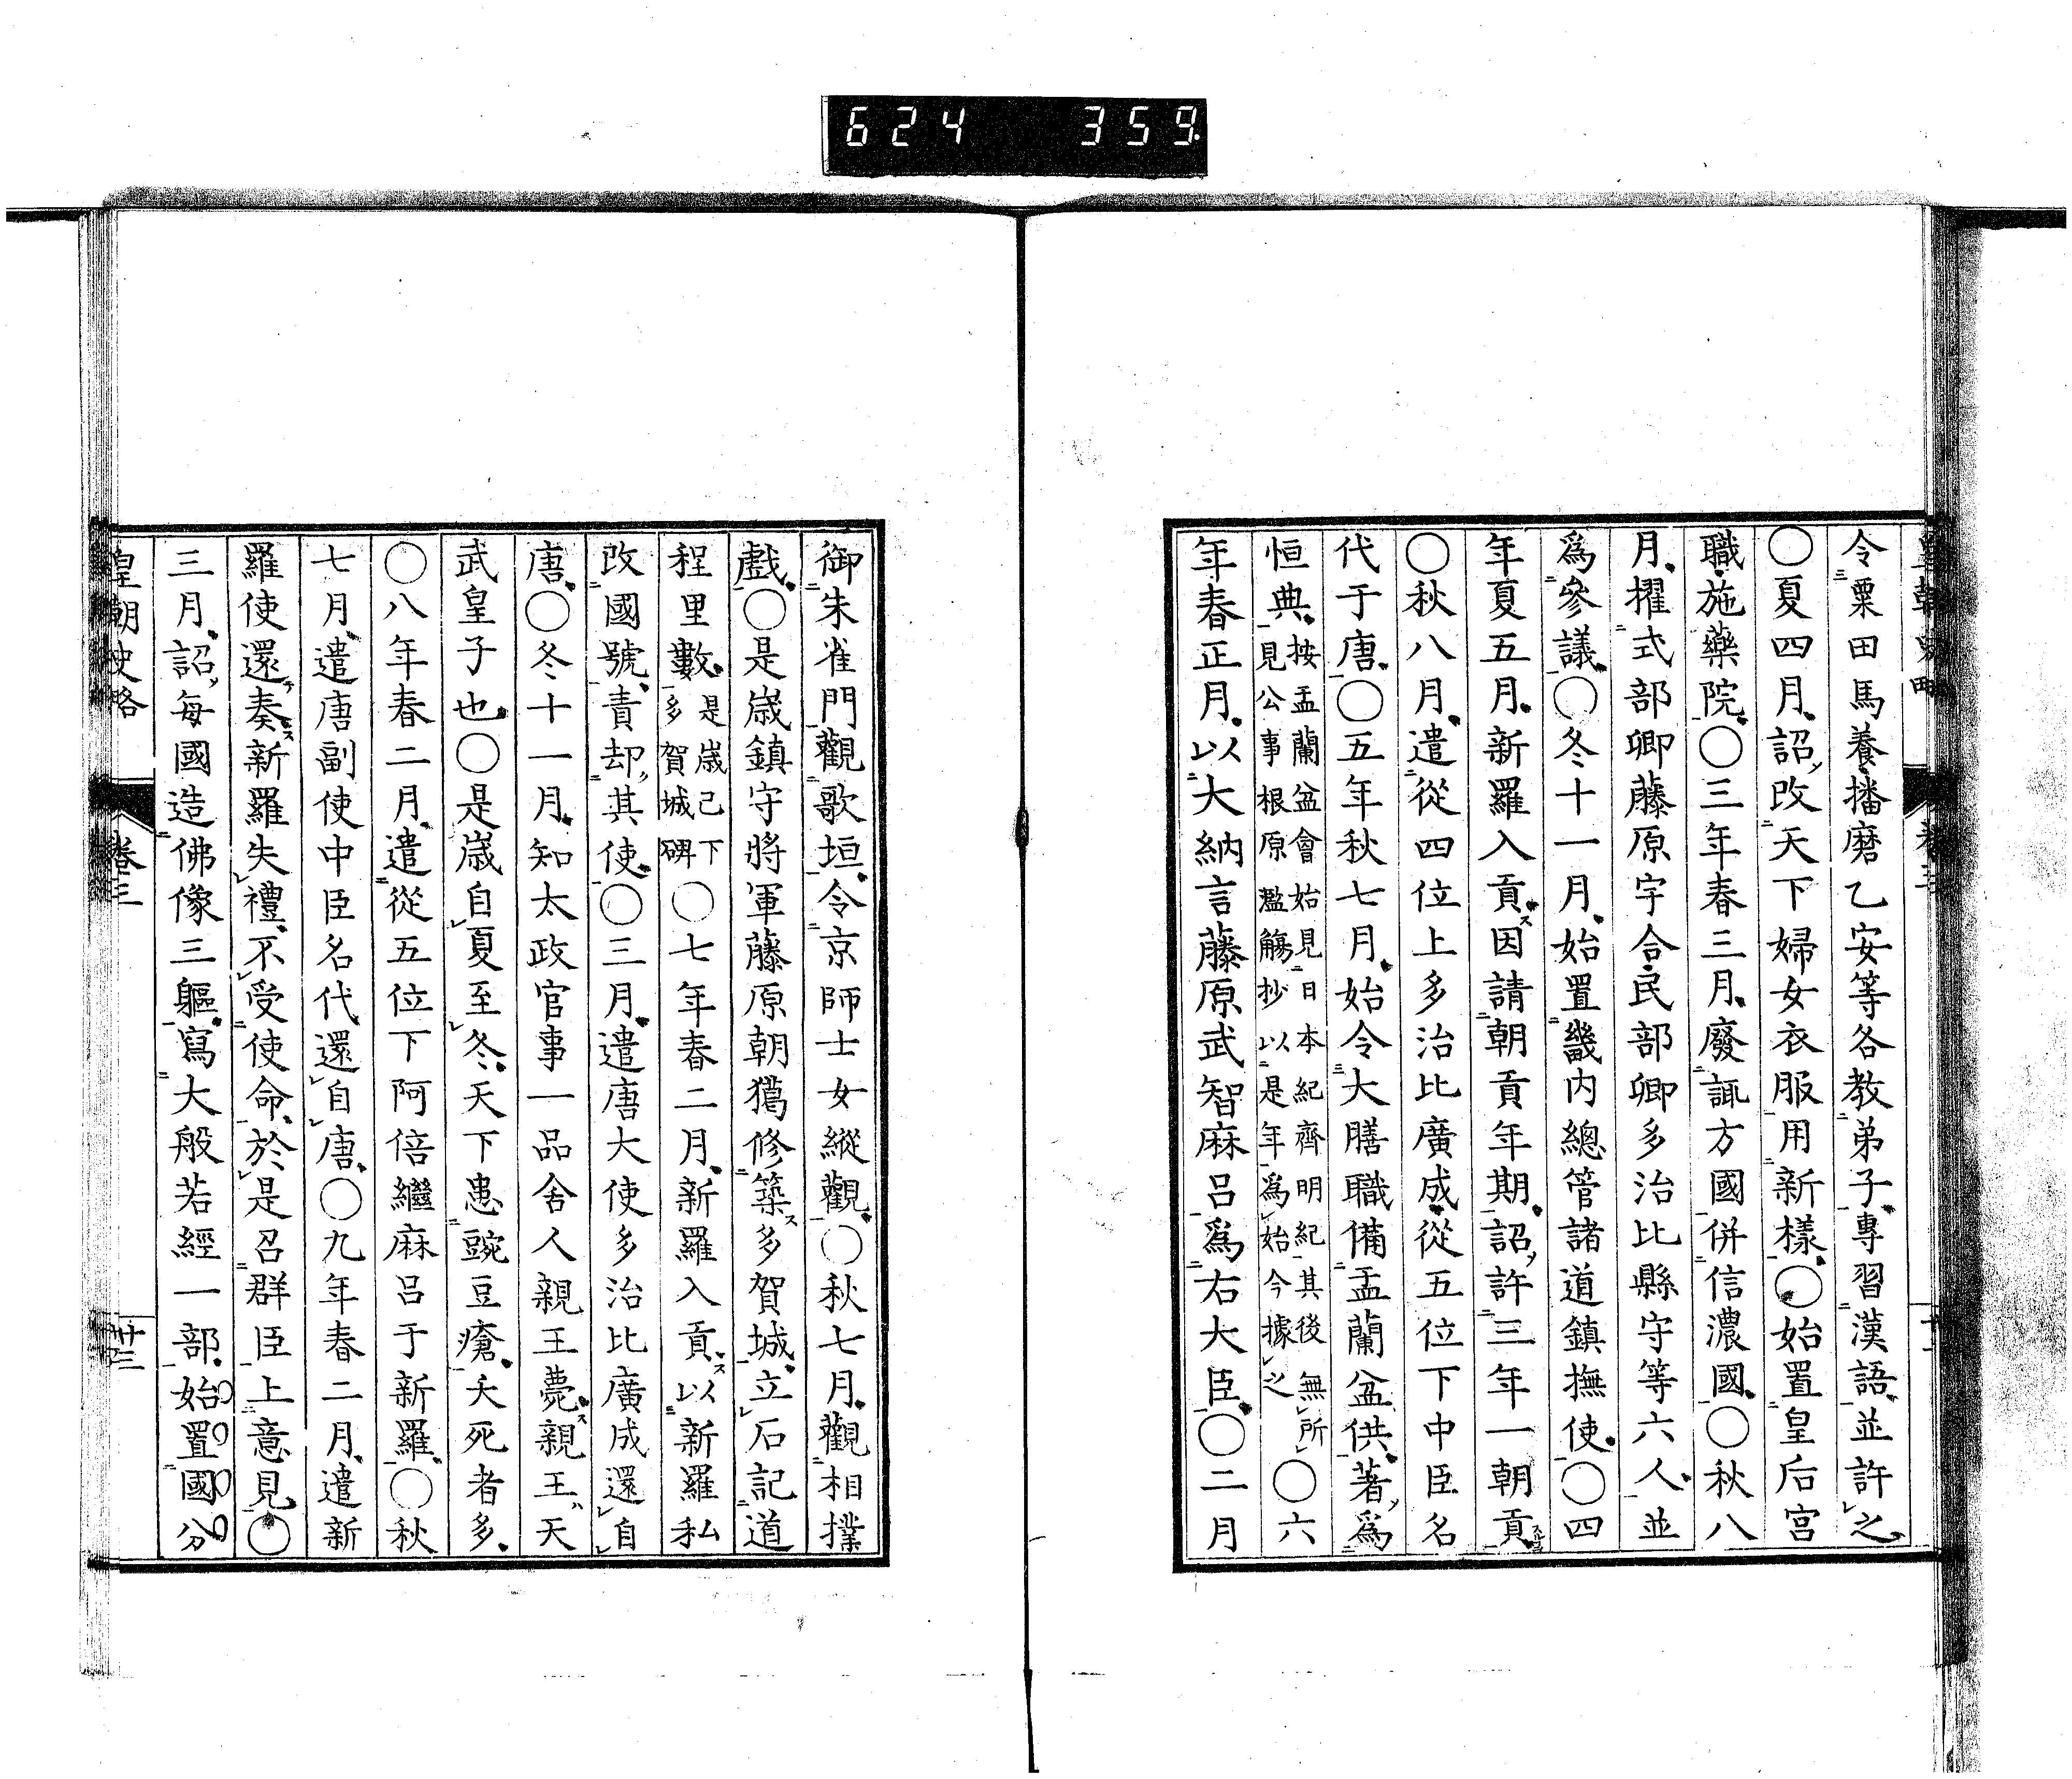 624 359
令粟田馬養播磨乙安等各教弟子專習漢語並許之
○夏四月詔改天下婦女衣服用新樣○始置皇后宮
職施藥院○三年春三月廢諏方國併信濃國○秋八
月擢式部卿藤原宇合民部卿多治比縣守等六人並
爲參議○冬十一月始置畿内總管諸道鎮撫使○四
年夏五月新羅入貢因請朝貢年期詔許三年一朝貢
○秋八月遣從四位上多治比廣成從五位下中臣名
代于唐○五年秋七月始令大膳職備盂蘭盆供著爲
恒典按盂蘭盆會始見日本紀齊明紀其後無所見公事根原濫觴抄以是年爲始今據之○六
年春正月以大納言藤原武智麻呂爲右大臣○二月
御朱雀門觀歌垣令京師士女縱觀○秋七月觀相撲
戲○是歲鎮守將軍藤原朝獦修築多賀城立石記道
程里數是歲己下多賀城碑○七年春二月新羅入貢以新羅私
改國號責却其使○三月遣唐大使多治比廣成還自
唐○冬十一月知太政官事一品舍人親王薨親王天
武皇子也○是歲自夏至冬天下患豌豆瘡夭死者多
○八年春二月遣從五位下阿倍繼麻呂于新羅○秋
七月遣唐副使中臣名代還自唐○九年春二月遣新
羅使還奏新羅失禮不受使命於是召群臣上意見○
三月詔每國造佛像三軀寫大般若經一部始置國分
皇朝史略 卷三 廿三